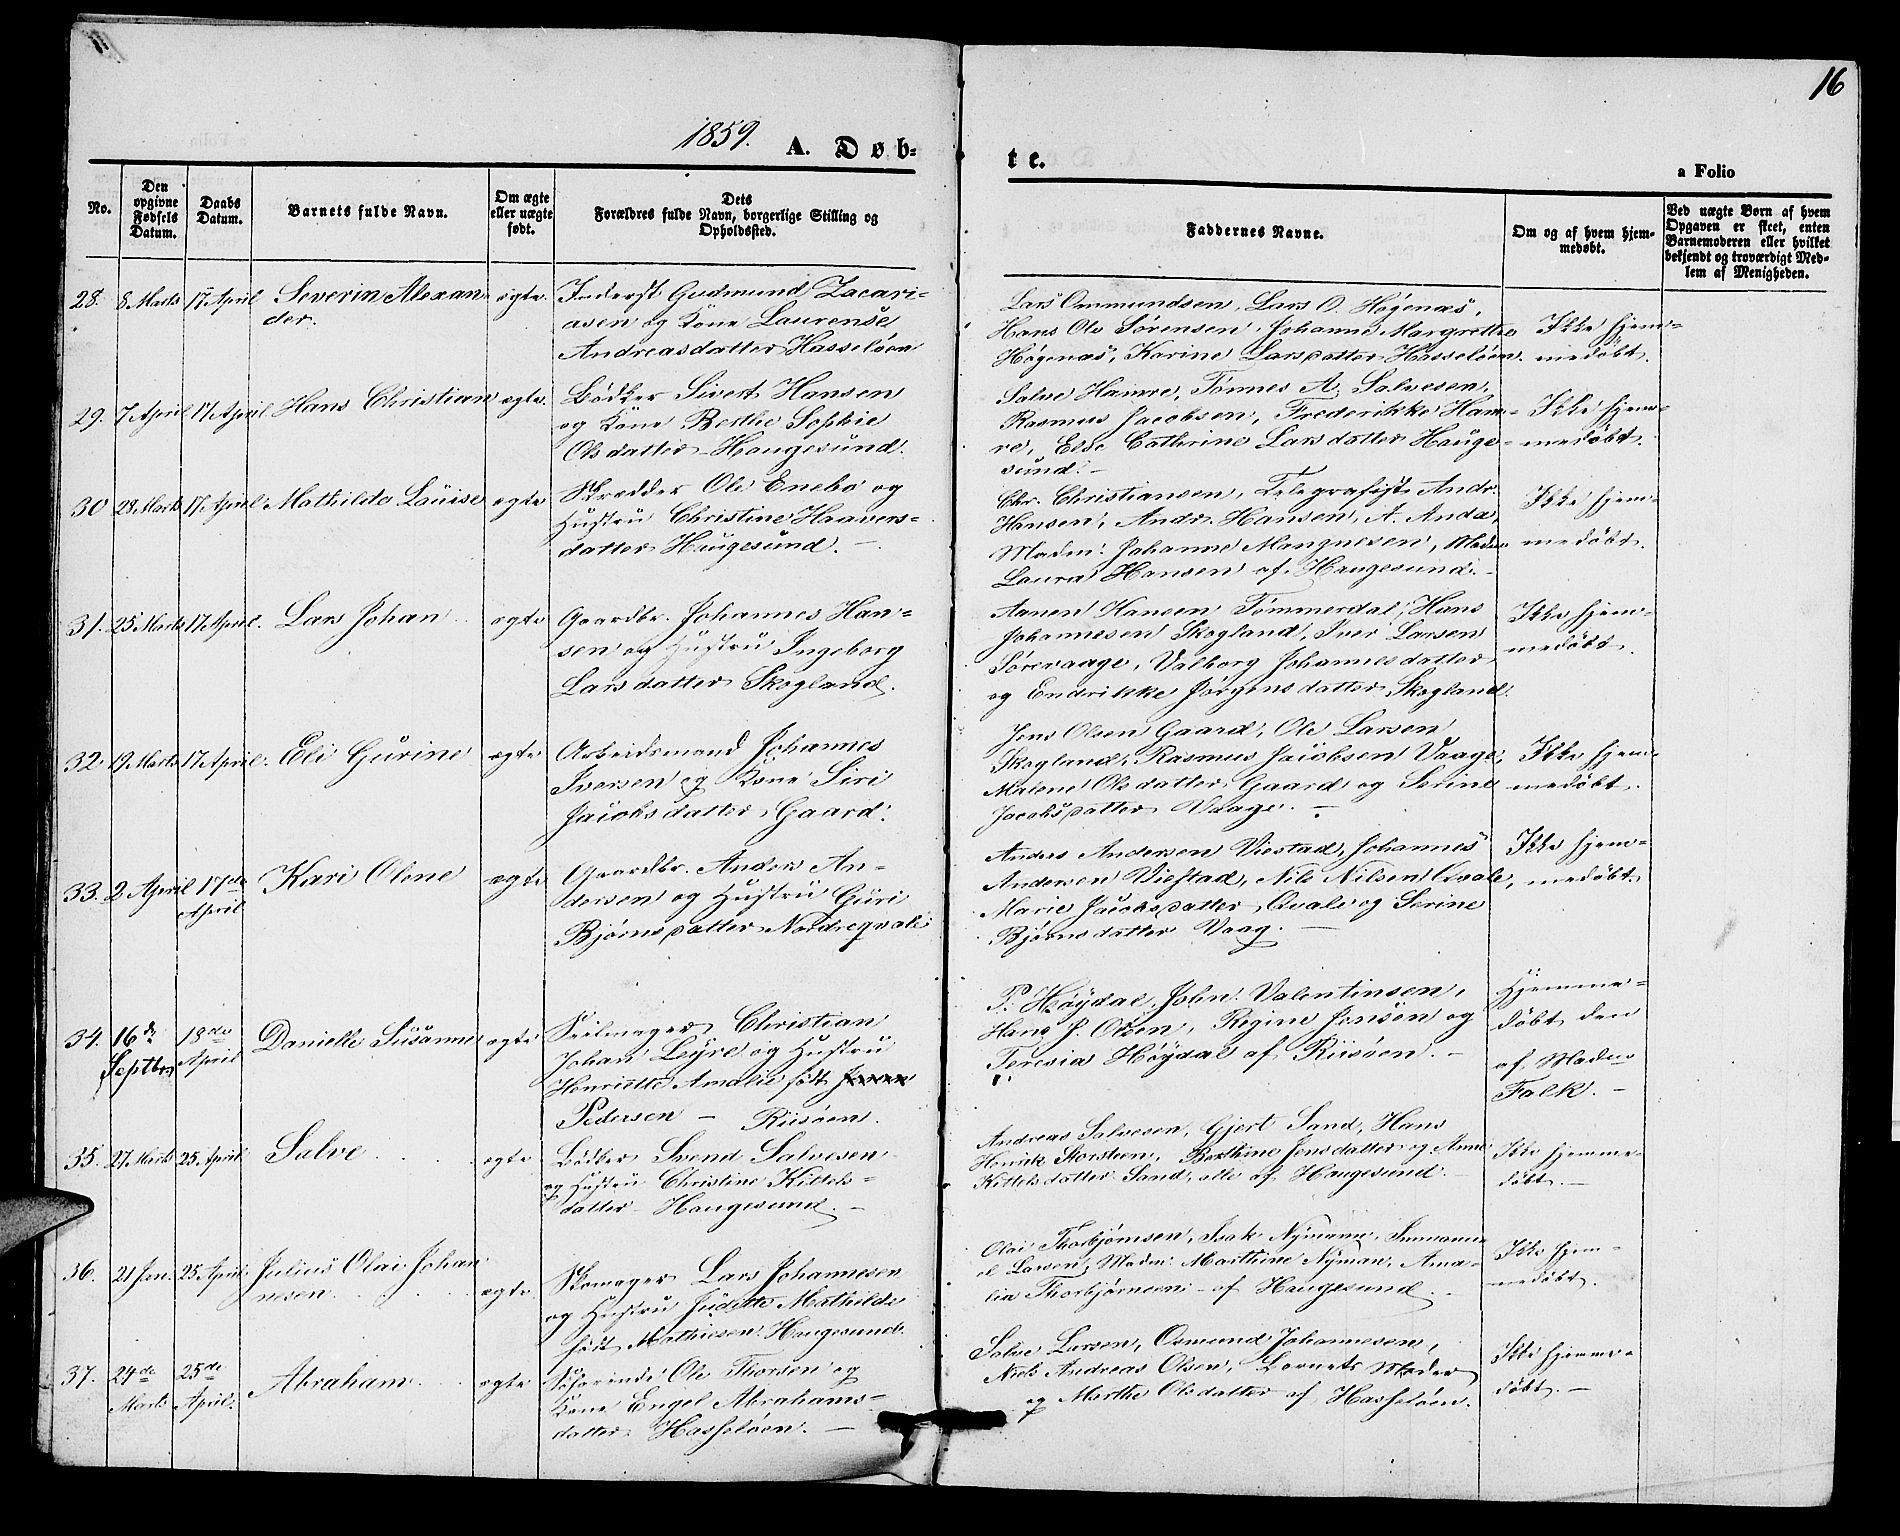 16
1859.
A. Døb-
te.
a Folio
No.
Den opgivne Fødsels Datum.
Daabs Datum.
Barnets fulde Navn.
Om ægte eller uægte født.
Dets Forældres fulde Navn, borgerlige Stilling og Opholdssted.
Faddernes Navne.
Om og af hvem hjemmedøbt.
Ved uægte Børn af hvem Opgaven er skeet, enten Barnemoderen eller hvilket bekjendt og troværdigt Medlem af Menigheden.
28. 8 Marts 17 April Severin Alexan-
der.
ægte
Inderst Gudmund Zacari-
asen og Kone Laurense
Andreasdatter Hasseløen
Lars Ommundsen, Lars O. Høgenæs,
Hans Ole Sørensen, Johanne Margrethe
Høgenæs, Karine Larsdatter Hasseløen.
Ikke hjem-
medøbt.
29. 7 April 17 April Hans Christian ægte
Bødker Sivert Hansen
og Kone Berthe Sophie
Olsdatter Haugesund.
Salve Hamre, Tønnes A. Salvesen,
Rasmus Jacobsen, Frederikke Ham-
re, Else Cathrine Larsdatter Hauge-
sund.-
Ikke hjem-
medøbt.
30 28 Marts 17 April Mathilde Louise ægte
Skrædder Ole Enebo og
Hustru Christine Haavers-
datter Haugesund. -
Chr. Christiansen, Telegrafist Andr.
Hansen, Andr. Hansen, A. Anda,
Madm: Johanne Mangnesen, Madm
Laura Hansen af Haugesund.-
Ikke hjem-
medøbt.
31. 25 Marts 17 April. Lars Johan ægte
Gaardbr. Johannes Han-
sen og Hustru Ingeborg
Larsdatter Skogland.
Aanen Hansen Tømmerdal, Hans
Johannesen Skogland, Iver Larsen
Sørevaage, Valborg Johannesdatter
og Endrikke Jørgensdatter Skogland.
Ikke hjem-
medøbt.
32 19 Marts 17 April. Eli Gurine ægte
Arbeidsmand Johannes
Iversen og Kone Siri
Jacobsdatter Gaard.
Jens Olsen Gaard, Ole Larsen
Skogland, Rasmus Jacobsen Vaage,
Malene Olsdatter Gaard og Serine
Jacobsdatter Vaage. -
Ikke hjem-
medøbt.
33. 2 April 17de
April
Kari Olene ægte
Gaardbr. Anders An-
dersen og Hustru Guri
Bjørnsdatter Nordreqvale
Anders Andersen Viestad, Johannes
Andersen Viestad, Nils Nilsen Qvale,
Marie Jacobsdatter Qvale og Serine
Bjørnsdatter Vaag. -
Ikke hjem-
medøbt
34. 16de
Septbr
18de
April
Danielle Susanne ægte
Seilmager Christian
Johan Leyre og Hustru
Henriette Amalie født
Pedersen - Riisøen.
P. Høydal, John Valentinsen,
Hans J. Olsen, Regine Jonsen og
Teresia Høydal af Riisøen. -
Hjemme-
døbt den
af Madm
Falk. -
35. 27 Marts 25 April. Salve ægte
Bødker Svend Salvesen
og Hustru Christine Kittels-
datter - Haugesund. -
Andreas Salvesen, Gjert Sand, Hans
Henrik Storsteen, Berthine Jensdatter og Anne
Kittelsdatter Sand, alle af Haugesund. -
Ikke hjemme-
døbt. -
36. 21 Jan. 25 April Julius Olai Johan
nesen
ægte
Skomager Lars Johannesen
og Hustru Judithe Mathilde
født Mathiesen Haugesund.
Olai Thorbjørnsen, Isak Nymann, Immanu-
el Larsen, Madm: Marthine Nyman, Ama-
lia Thorbjørnsen - af Haugesund.
Ikke hjem-
medøbt.
37. 24de
Marts
25de
April.
Abraham ægte
Søfarende Ole Thorsen og
Kone Engel Abrahams-
datter Hasseløen. -
Salve Larsen, Osmund Johannesen,
Niels Andreas Olsen, Barnets Moder
og Marthe Olsdatter af Hasseløen.
Ikke hjemme-
døbt. -